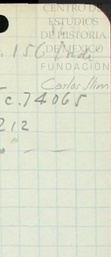 CENTRO DE
ESTUDIOS
DE HISTORIA
DE MÉXICO
FUNDACIÓN
Carlos Slim
c.74065
212